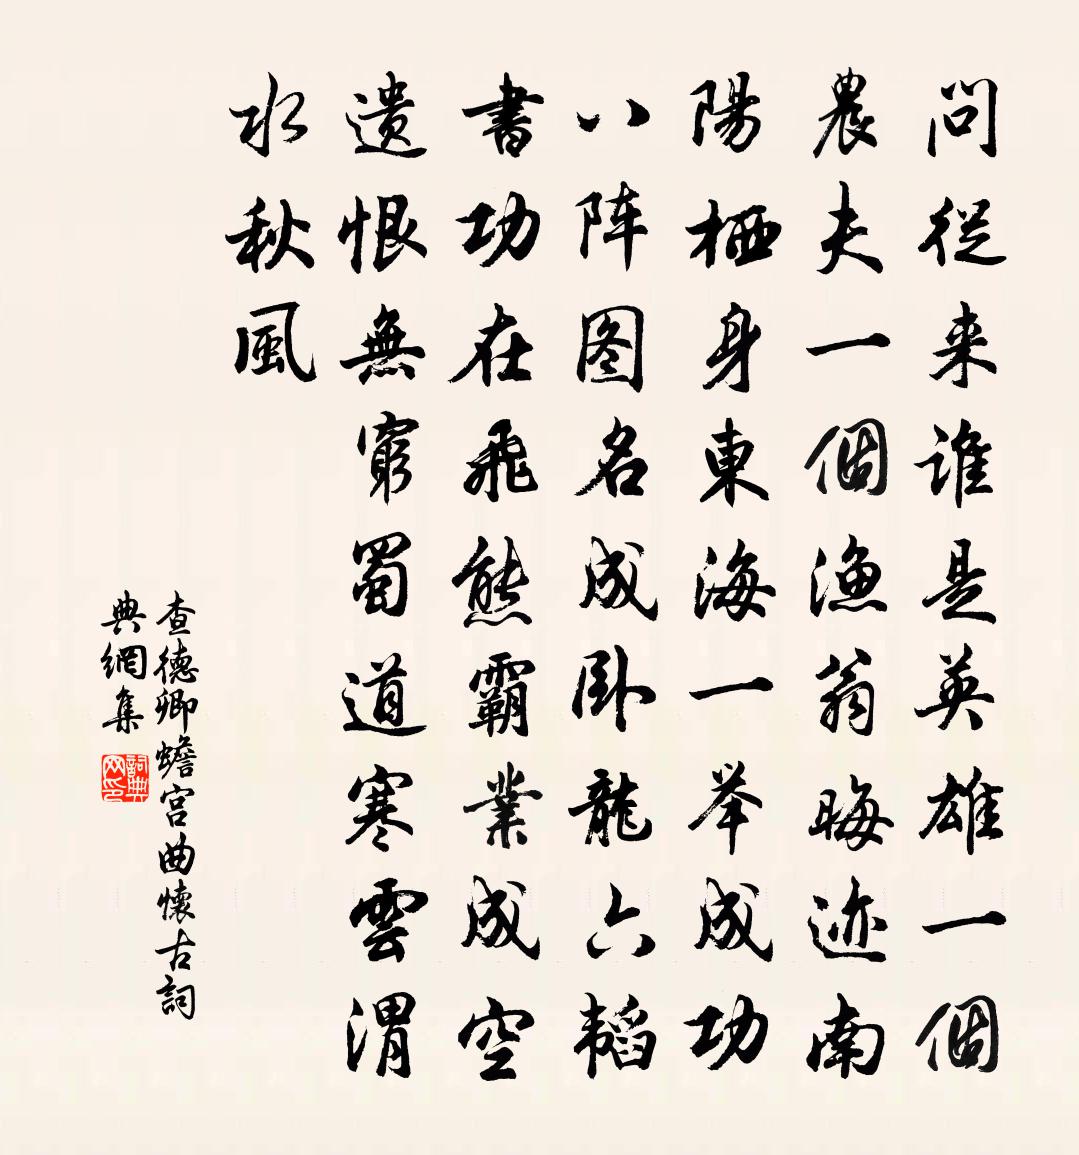 問從来谁是英雄一個
農夫一個漁翁晦迹南
陽栖身東海一举成功
八阵图名成卧龍六韬
書功在飛熊霸業成空
遗恨無窮蜀道寒雲渭
水秋風
查德卿蟾宫曲懷古詞
典網集
詞典
网印